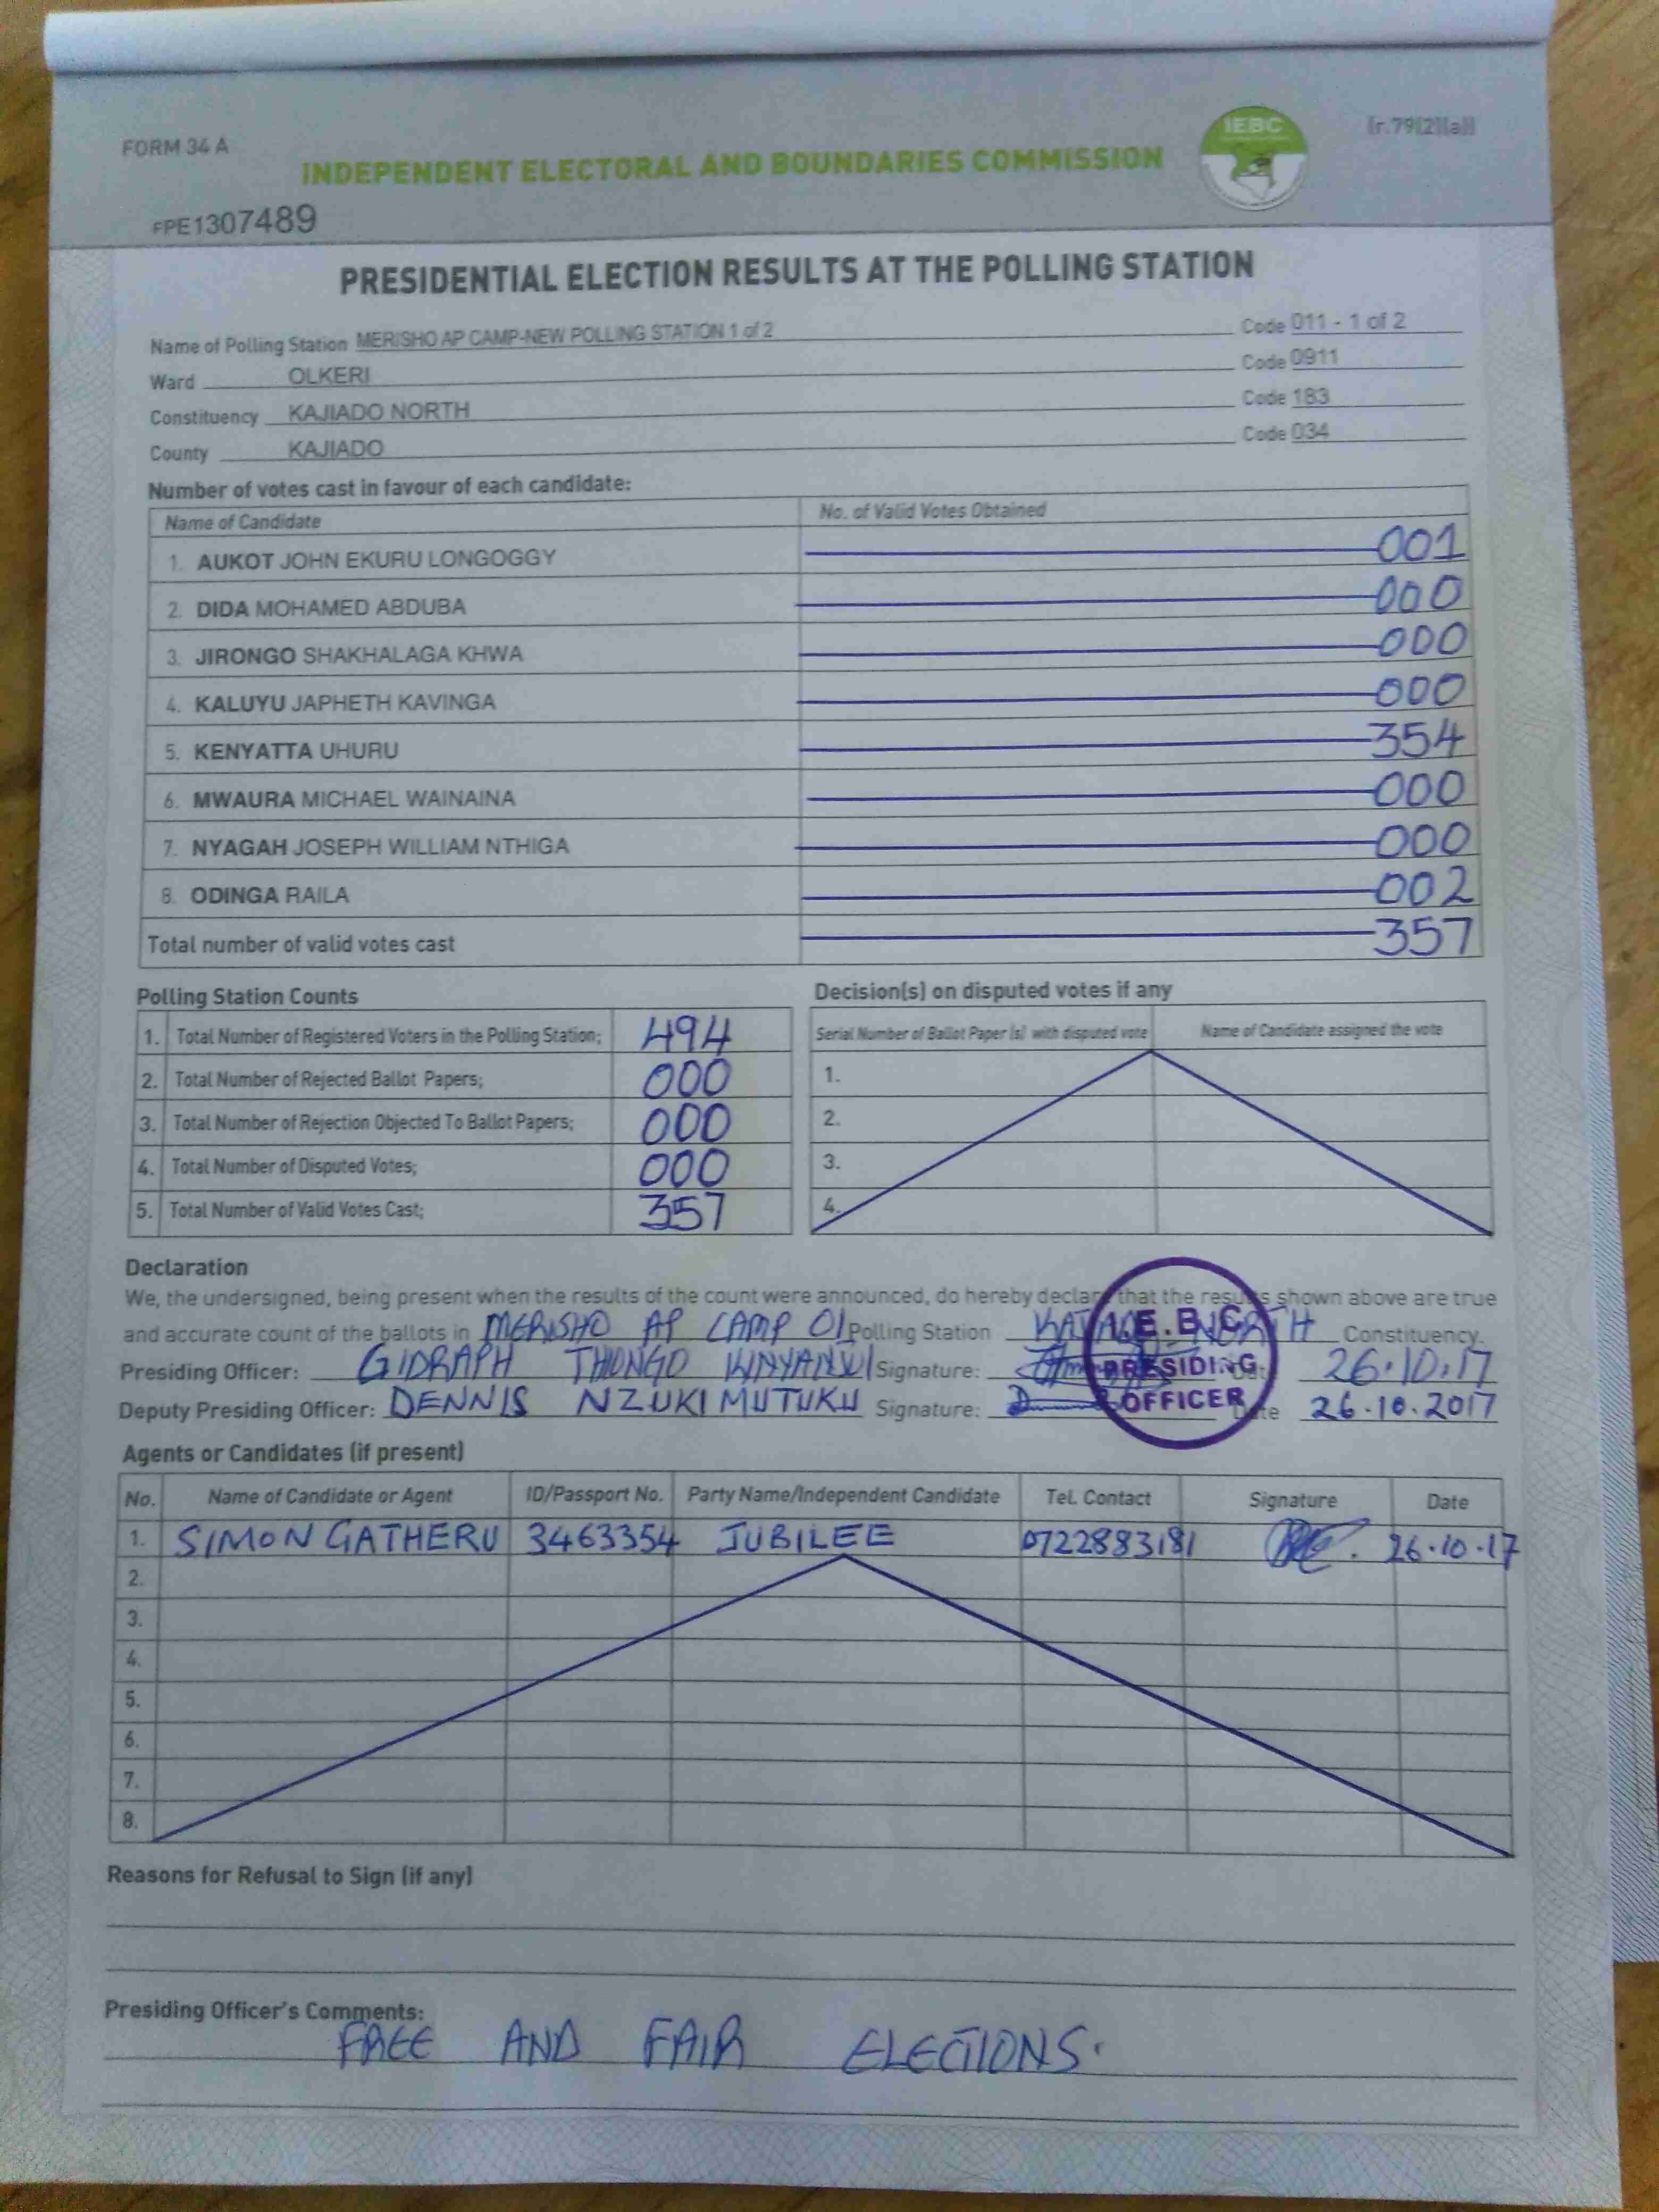 FORM 34 A
INDEPENDENT ELECTORAL AND BOUNDARIES COMMISSION
IEBC
[r.79(2)(a)]
FPE1307489
PRESIDENTIAL ELECTION RESULTS AT THE POLLING STATION
Name of Polling Station MERISHO AP CAMP-NEW POLLING STATION 1 of 2 Code 011 - 1 of 2
Ward OLKERI Code 0911
Constituency KAJIADO NORTH Code 183
County KAJIADO Code 034
Number of votes cast in favour of each candidate:
Name of Candidate No. of Valid Votes Obtained
1. AUKOT JOHN EKURU LONGOGGY 001
2. DIDA MOHAMED ABDUBA 000
3. JIRONGO SHAKHALAGA KHWA 000
4. KALUYU JAPHETH KAVINGA 000
5. KENYATTA UHURU 354
6. MWAURA MICHAEL WAINAINA 000
7. NYAGAH JOSEPH WILLIAM NTHIGA 000
8. ODINGA RAILA 002
Total number of valid votes cast 357
Polling Station Counts
1. Total Number of Registered Voters in the Polling Station; 494
2. Total Number of Rejected Ballot Papers; 000
3. Total Number of Rejection Objected To Ballot Papers; 000
4. Total Number of Disputed Votes; 000
5. Total Number of Valid Votes Cast; 357
Decision(s) on disputed votes if any
Serial Number of Ballot Paper (s) with disputed vote Name of Candidate assigned the vote
1.
2.
3.
4.
Declaration
We, the undersigned, being present when the results of the count were announced, do hereby declare that the results shown above are true
and accurate count of the ballots in MERISHO AP CAMP 01 Polling Station KAJIADO NORTH Constituency.
Presiding Officer: GIDRAPH THONGO KINYANJUI Signature: Date 26.10.17
Deputy Presiding Officer: DENNIS NZUKI MUTUKU Signature: Date 26.10.2017
I.E.B.C
PRESIDING
OFFICER
Agents or Candidates (if present)
No. Name of Candidate or Agent ID/Passport No. Party Name/Independent Candidate Tel. Contact Signature Date
1. SIMON GATHERU 3463354 JUBILEE 0722883181 26.10.17
2.
3.
4.
5.
6.
7.
8.
Reasons for Refusal to Sign (if any)
Presiding Officer's Comments:
FREE AND FAIR ELECTIONS.